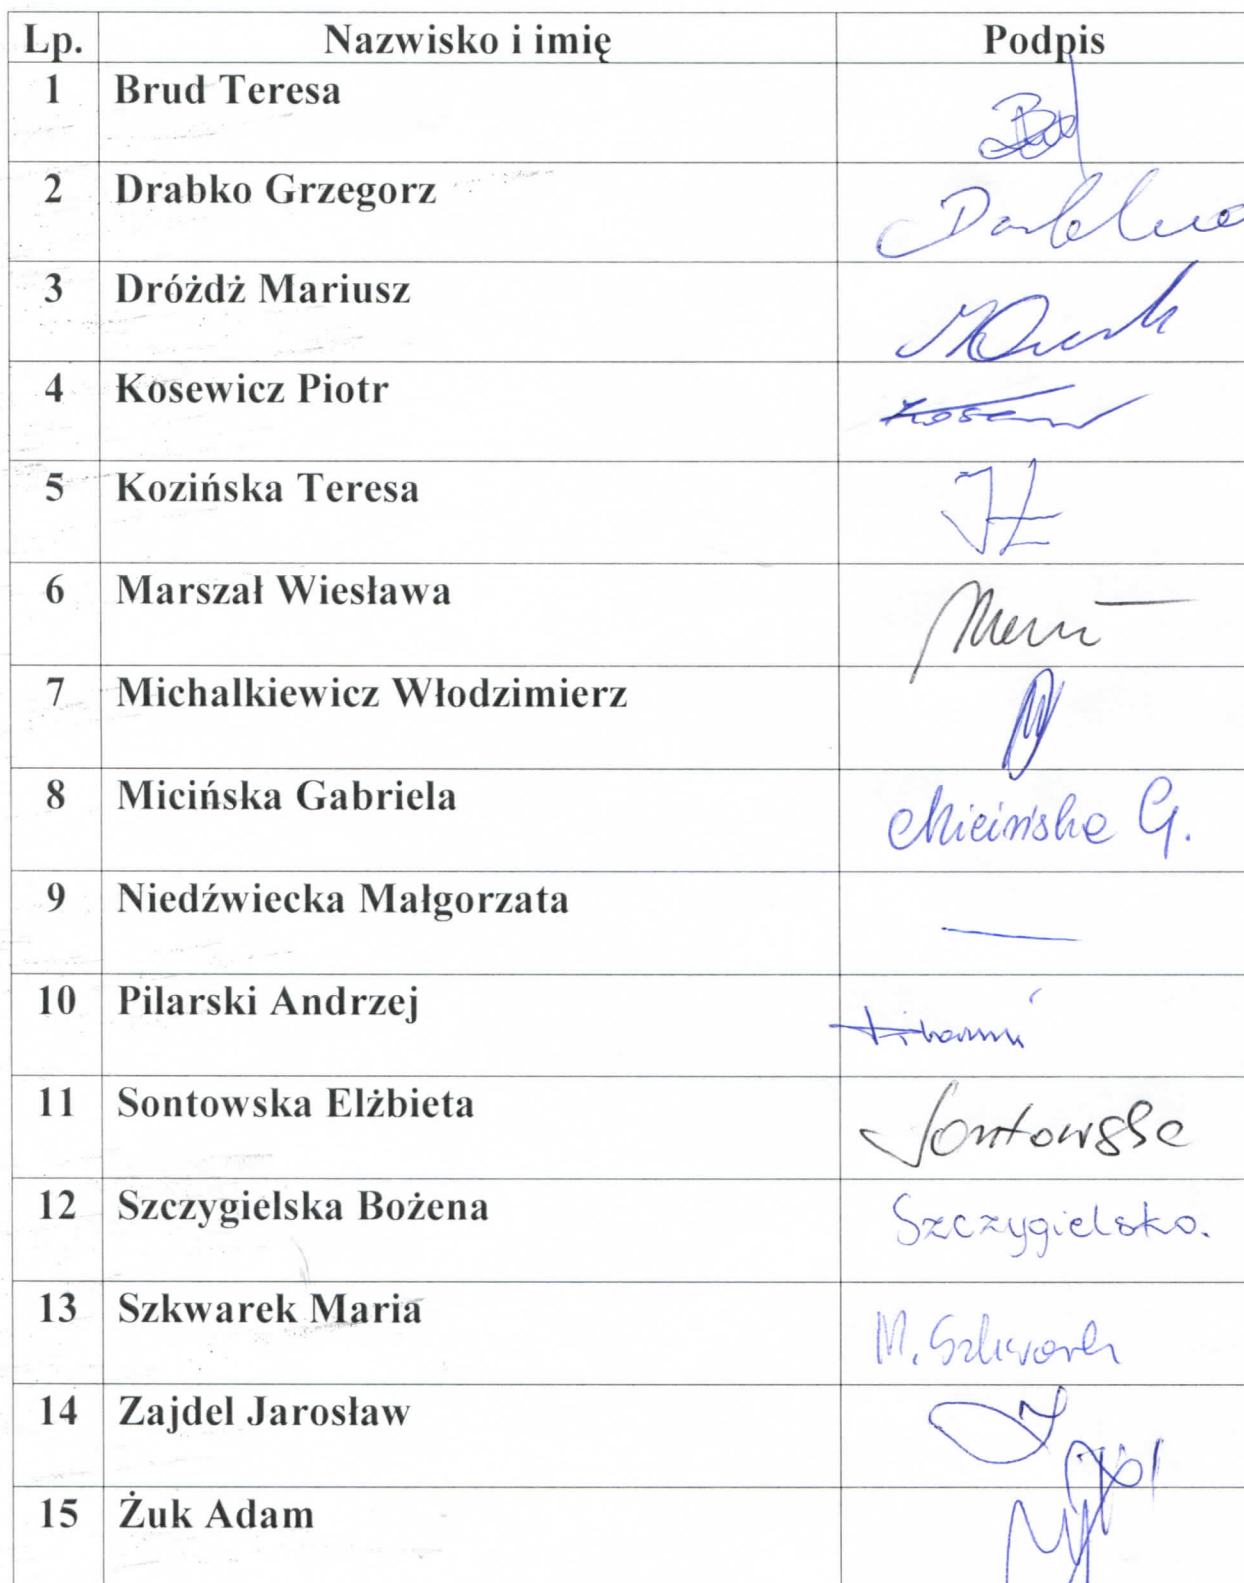 Lp. Nazwisko i imię Podpis
1 Brud Teresa
2 Drabko Grzegorz
3 Dróżdż Mariusz
4 Kosewicz Piotr
5 Kozińska Teresa
6 Marszał Wiesława
7 Michalkiewicz Włodzimierz
8 Micińska Gabriela Micińska G.
9 Niedźwiecka Małgorzata —
10 Pilarski Andrzej
11 Sontowska Elżbieta Sontowska
12 Szczygielska Bożena Szczygielska.
13 Szkwarek Maria M. Szkwarek
14 Zajdel Jarosław
15 Żuk Adam